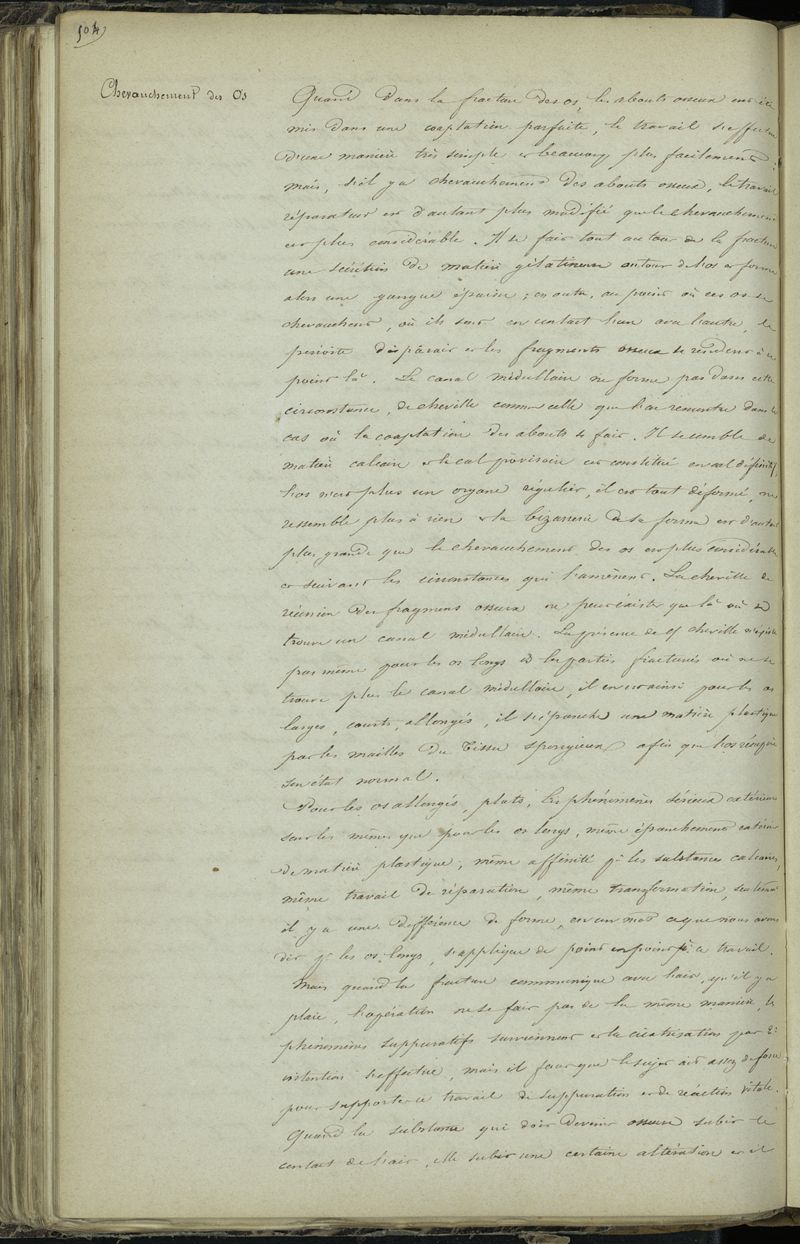 504
Chevauchement des Os
Quand dans la fracture des os, les abouts osseux ont été
mis dans une coaptation parfaite, le travail s'effectue
d'une manière très simple et beaucoup plus facilement;
mais, s'il y a chevauchement des abouts osseux, le travail
réparateur est d'autant plus modifié que le chevauchement
est plus considérable. Il se fait tout autour de la fracture
une sécrétion de matière gélatineuse autour de l'os et forme
alors une gangue épaisse; en outre, au point où ces os se
chevauchent, où ils sont en contact l'un avec l'autre, le
périoste disparait et les fragments osseux se à ce
point là. Le canal médullaire ne forme pas dans cette
circonstance, de cheville comme celle que l'on rencontre dans le
cas où la coaptation des abouts se fait. Il se comble de
matière calcaire et le cal provisoire est constitué en cal définitif,
l'os n'est plus un organe régulier, il est tout déformé, ne
ressemble plus à rien et la bizarrerie de sa forme est d'autant
plus grande que le chevauchement des os est plus considérable
et suivant les circonstances qui l'amènent. La cheville de
réunion des fragmens osseux ne peut éxister que là où se
trouve un canal médullaire. La présence de cheville n'existe
pas même pour les os longs les parties fracturées où ne se
trouve plus le canal médullaire, il en est ainsi pour les os
larges, courts, allongés, il s'épanche une matière plastique
par les mailles du tissu spongieux afin que l'os
son état normal.
Pour les os allongés, plats, les phénomènes sérieux extérieurs
sont les mêmes que pour les os longs, même épanchement extérieur
de matière plastique, même affinité pr les substances calcaires,
même travail de réparation, même transformation, seulement
il y a une différence de forme, en un mot ce que nous avons
dit pr les os longs, s'applique de point en point à ce travail.
Mais quand la fracture communique avec l'air, qu'il y a
plaie, l'opération ne se fait pas de la même manière, les
phénomènes suppuratifs surviennent et la cicatrisation par 2e
intention s'effectue, mais il faut que le sujet ait assez de force
pour supporter ce travail de suppuration et de réaction vitale.
Quand la substance qui doit devenir osseuse subit le
contact de l'air, elle subit une certaine altération et il